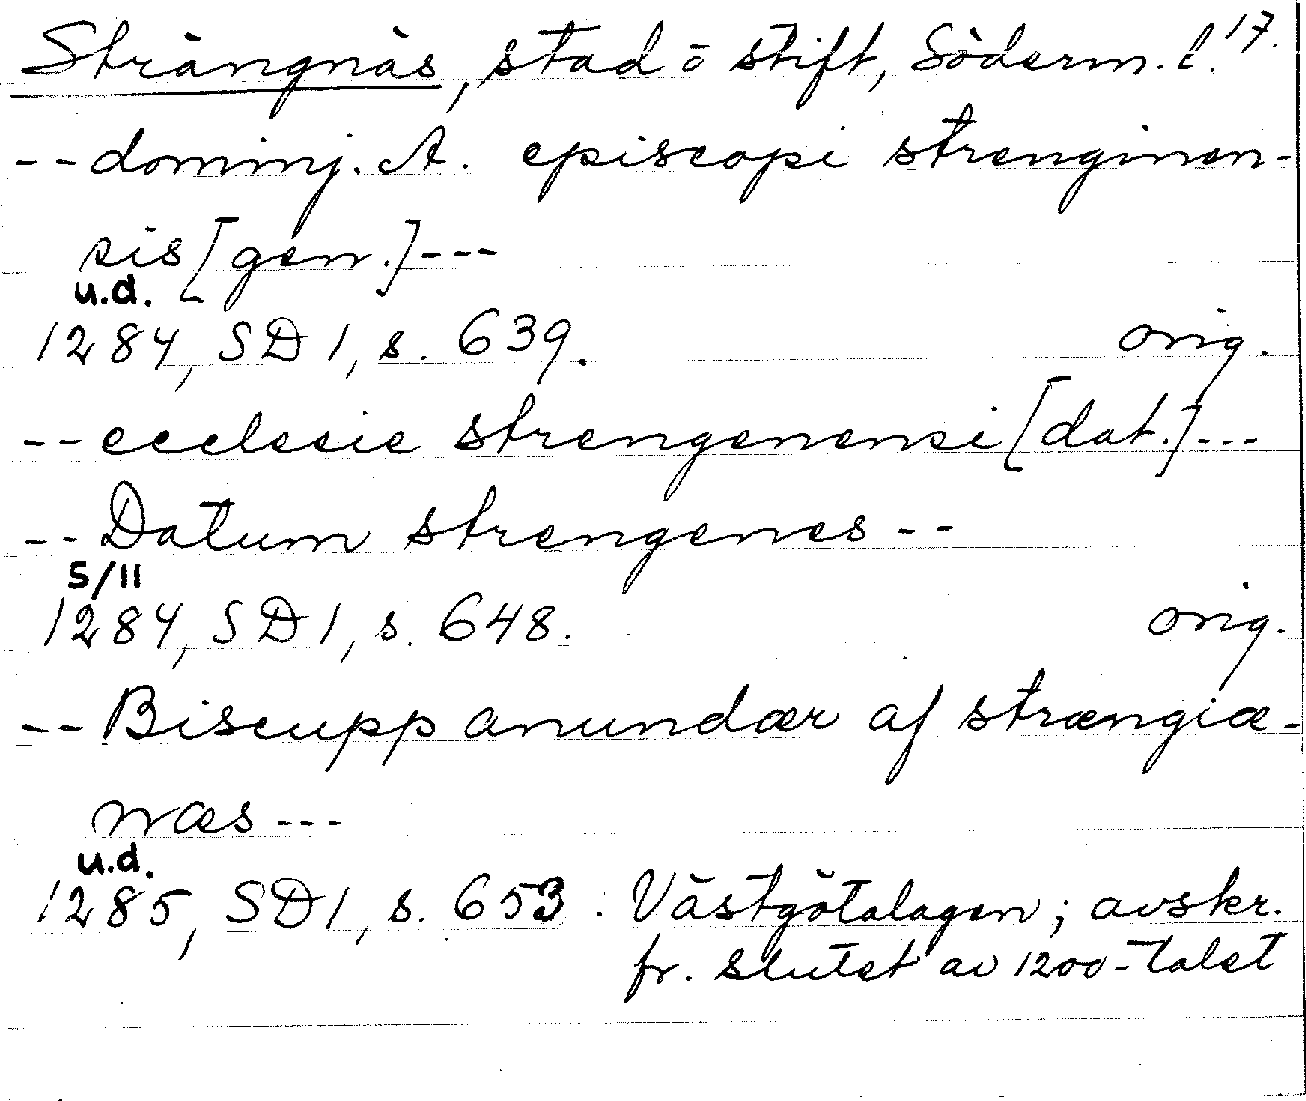 Strängnäs, stad o stift, Söderm. l. 17.
-- dominj. A. episcopi strenginen-
sis [gen.] ---
u.d.
1284, SD 1, s. 639. orig.
-- ecclesie strengenensi [dat.] ---
-- Datum strengenes --
5/11
1284, SD 1, s. 648. orig.
-- Biscupp anundær af strængiæ-
næs ---
u.d.
1285, SD 1, s. 653. Västgötalagen; avskr.
fr. slutet av 1200-talet